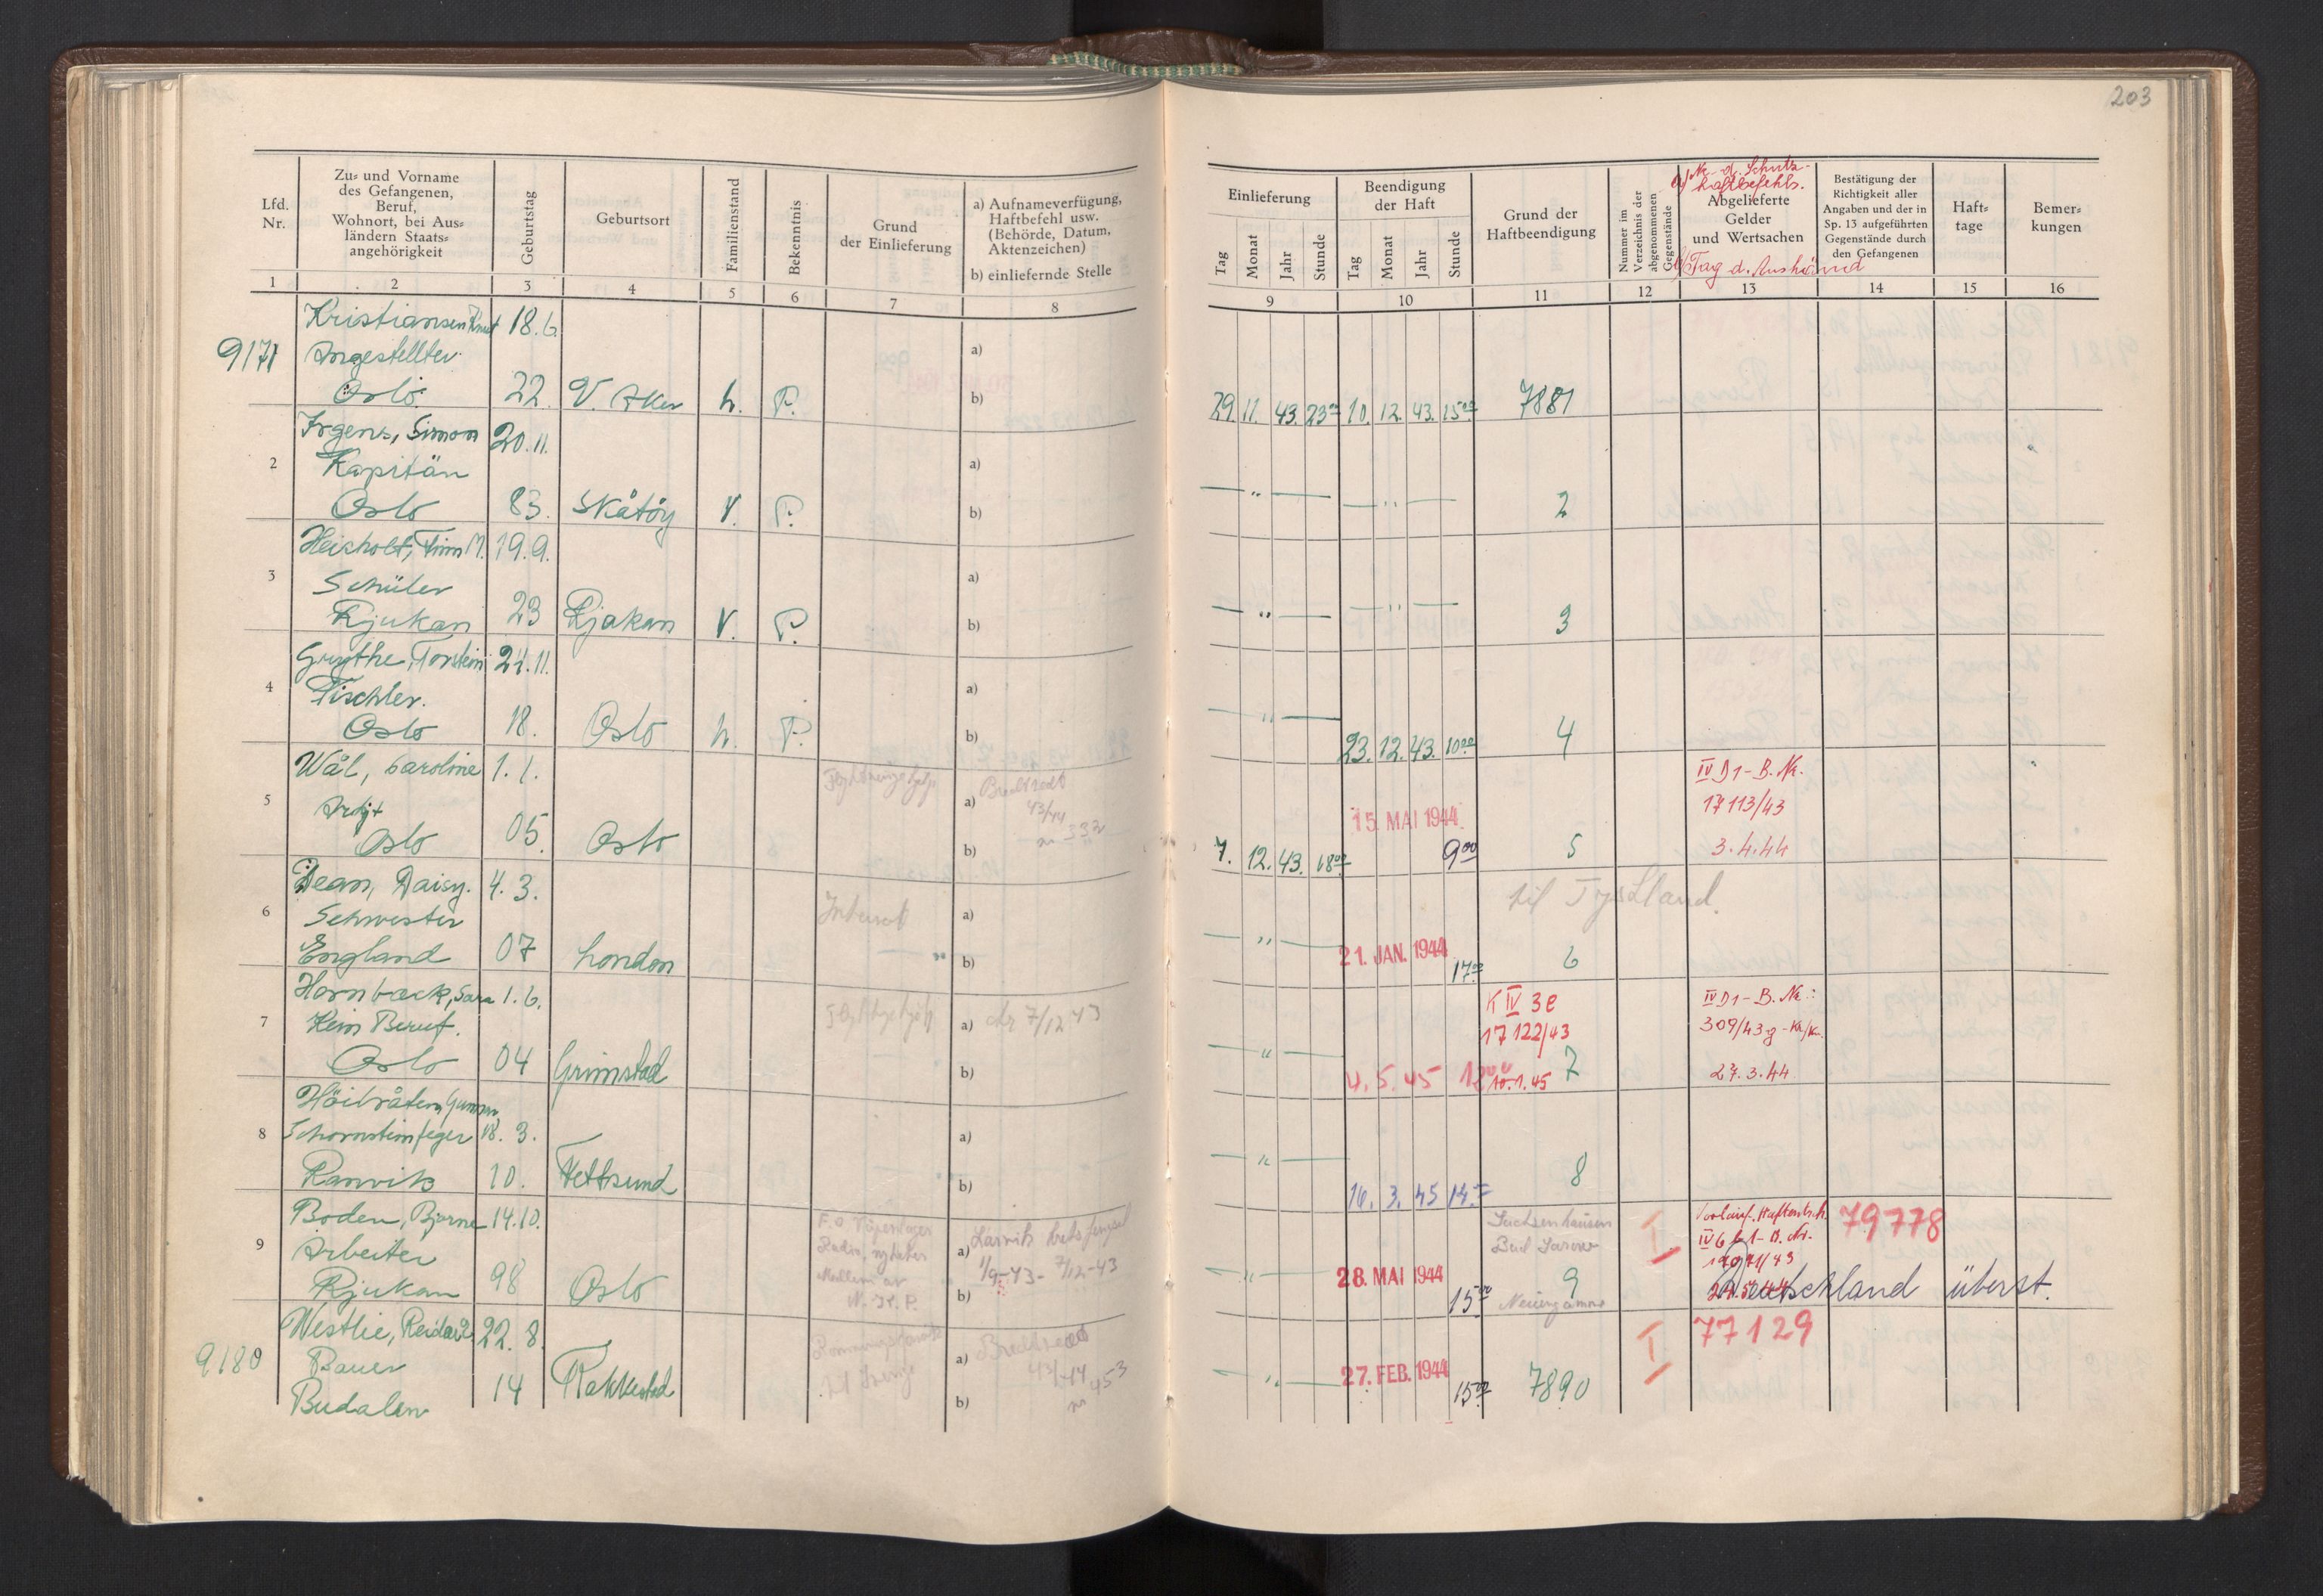 203
Lfd.
Nr.
Zu- und Vorname
des Gefangenen,
Beruf,
Wohnort, bei Aus-
ländern Staats-
angehörigkeit
Geburtstag
Geburtsort
Familienstand
Bekenntnis
Grund
der Einlieferung
a) Aufnameverfügung,
Haftbefehl usw.
(Behörde, Datum,
Aktenzeichen)
b) einliefernde Stelle
Einlieferung
Tag Monat Jahr Stunde
Beendigung
der Haft
Tag Monat Jahr Stunde
Grund der
Haftbeendigung
Nummer im
Verzeichnis der
abgenommenen
Gegenstände
a/ Nr. d. Schutz-
haftbefehls.
Abgelieferte
Gelder
und Wertsachen
b/ Tag d. Aushänd
Bestätigung der
Richtigkeit aller
Angaben und der in
Sp. 13 aufgeführten
Gegenstände durch
den Gefangenen
Haft-
tage
Bemer-
kungen
1 2 3 4 5 6 7 8 9 10 11 12 13 14 15 16
Kristiansen Knut 18.6.
9171 Angestellter a)
Oslo 22. V. Aker h. P. b) 29. 11. 43. 23⁰⁰ 10. 12. 43. 15⁰⁰ 7881
Irgens, Simon 20.11.
2 Kapitän a)
Oslo 83. Skåtöy V. P. b) — " — — " — 2
Heisholt, Finn M. 19.9.
3 Schüler a)
Rjukan 23 Rjakan V. P. b) — " — — " — 3
Grythe, Torstein 24.11.
4 Tischler. a)
Oslo 18. Oslo h. P. b) — " — 23. 12. 43. 10⁰⁰ 4
Wål, Caroline 1.1. IV D1 - B. Nr.
5 a) Bredtvedt 15. MAI 1944 17113/43
43/44
Oslo 05. Oslo b) 7. 12. 43. 18⁰⁰ 9⁰⁰ 5 3.4.44
Dean, Daisy. 4.3. til Tyskland.
6 Schwester Internert a)
England 07 London — " b) — " — 21. JAN. 1944 17⁰⁰ 6
Hornbæck, Sara 1.6. K IV 3e IV D1 - B. Nr.:
7 Kein Beruf. a) 7/12 43 17122/43 309/43g - Kr/Kr.
Oslo 04 Grimstad b) — " — 4.5.45 10.1.45 7 27.3.44
Höibråten, Gunnar
8 Schornsteinfeger 18.3. a)
Ranvik 10. Fettsund b) — " — 16. 3. 45 14 8
Boden, Bjarne 14.10. Sachsenhausen I 79778
Bad Sarow
9 Arbeiter Radio, nyheter a) Larvik krets fengsel IV 6 b 1 - B. Nr.
Medlem av 1/9-43 - 7/12-43
Rjukan 98 Oslo N.K.P. b) — " — 28. MAI 1944 15⁰⁰ 9 Neuengamme Deutschland überst.
Westlie, Reidar 22.8. I 77129
9180 Bauer til Sverige a) Bredtvedt 43/44
Budalen 14 Rakkestad b) — " — 27. FEB. 1944 15⁰⁰ 7890